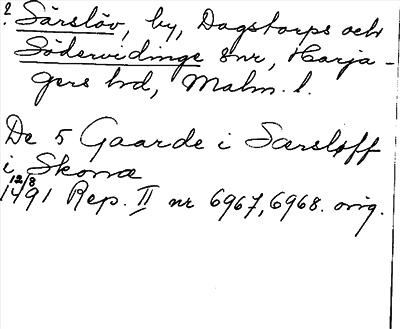 ? Särslöv, by, Dagstorps och
Södervidinge snr, Harja-
gers hd, Malm. l.
De 5 Gaarde i Særsløff
i Skone
12/8
1491 Rep. II nr 6967, 6968. orig.